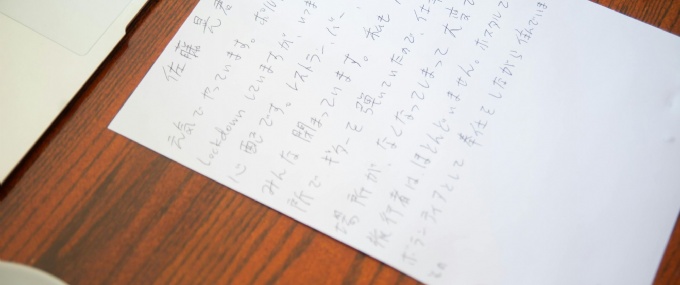 佐藤 晃君
元気でやっています。ポル
Lockdownしていますが、いま
心配です。レストラン、バー、
みんな閉まっています。私も
所でギターを弾いていたので、仕
場所がなくなってしまって大変
旅行者はほとんどいません。ホスタルで
ボランティアとして奉仕をしながら住んでいま